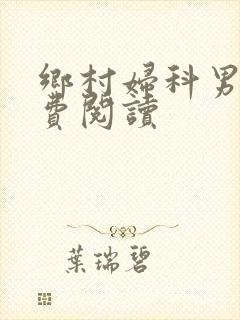 鄉村婦科男
費閱讀
葉瑞碧